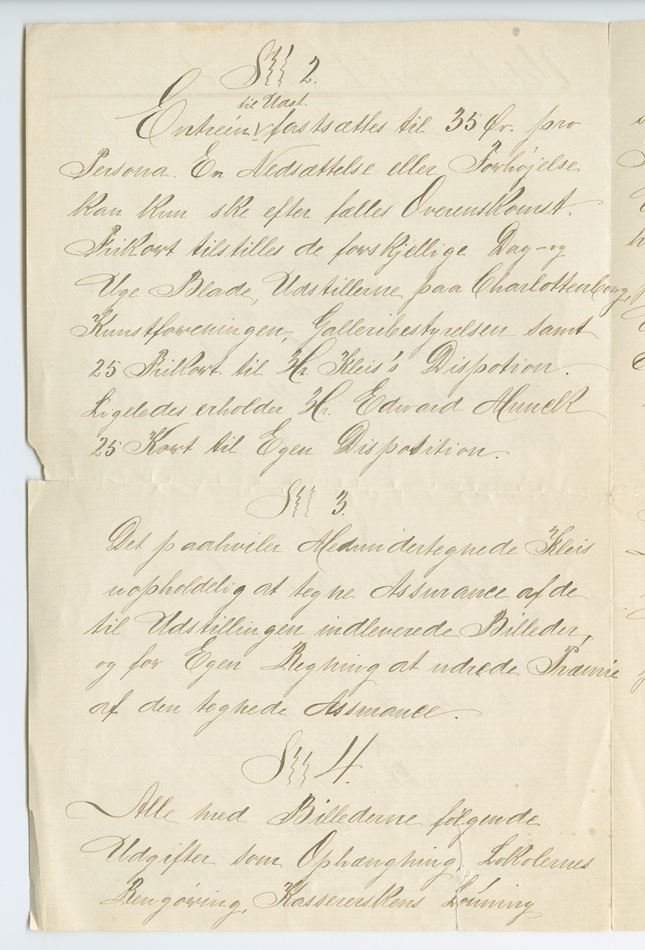 §§ 2.
til Udst.
Entreén fastsættes til 35 Ør. pro
Persona. En Nedsættelse eller Forhøjelse
kan kun ske efter fælles Overenskomst.
Frikort tilstilles de forskjellige Dag- og
Uge Blade, Udstillerne paa Charlottenborg,
Kunstforeningen, Galleribestyrelsen samt
25 Frikort til Hr. Kleis's Dispotion.
Ligeledes erholder Hr. Edward Munck
25 Kort til Egen Disposition.
§§ 3.
Det paahviler Medundertegnede Kleis
uopholdelig at tegne Assurance af de
til Udstillingen indleverede Billeder,
og for Egen Regning at udrede Præmie
af den tegnede Assurance.
§§ 4.
Alle med Billederne følgende
Udgifter som Ophængning, Lokalernes
Rengöring, Kassererskens Lönning